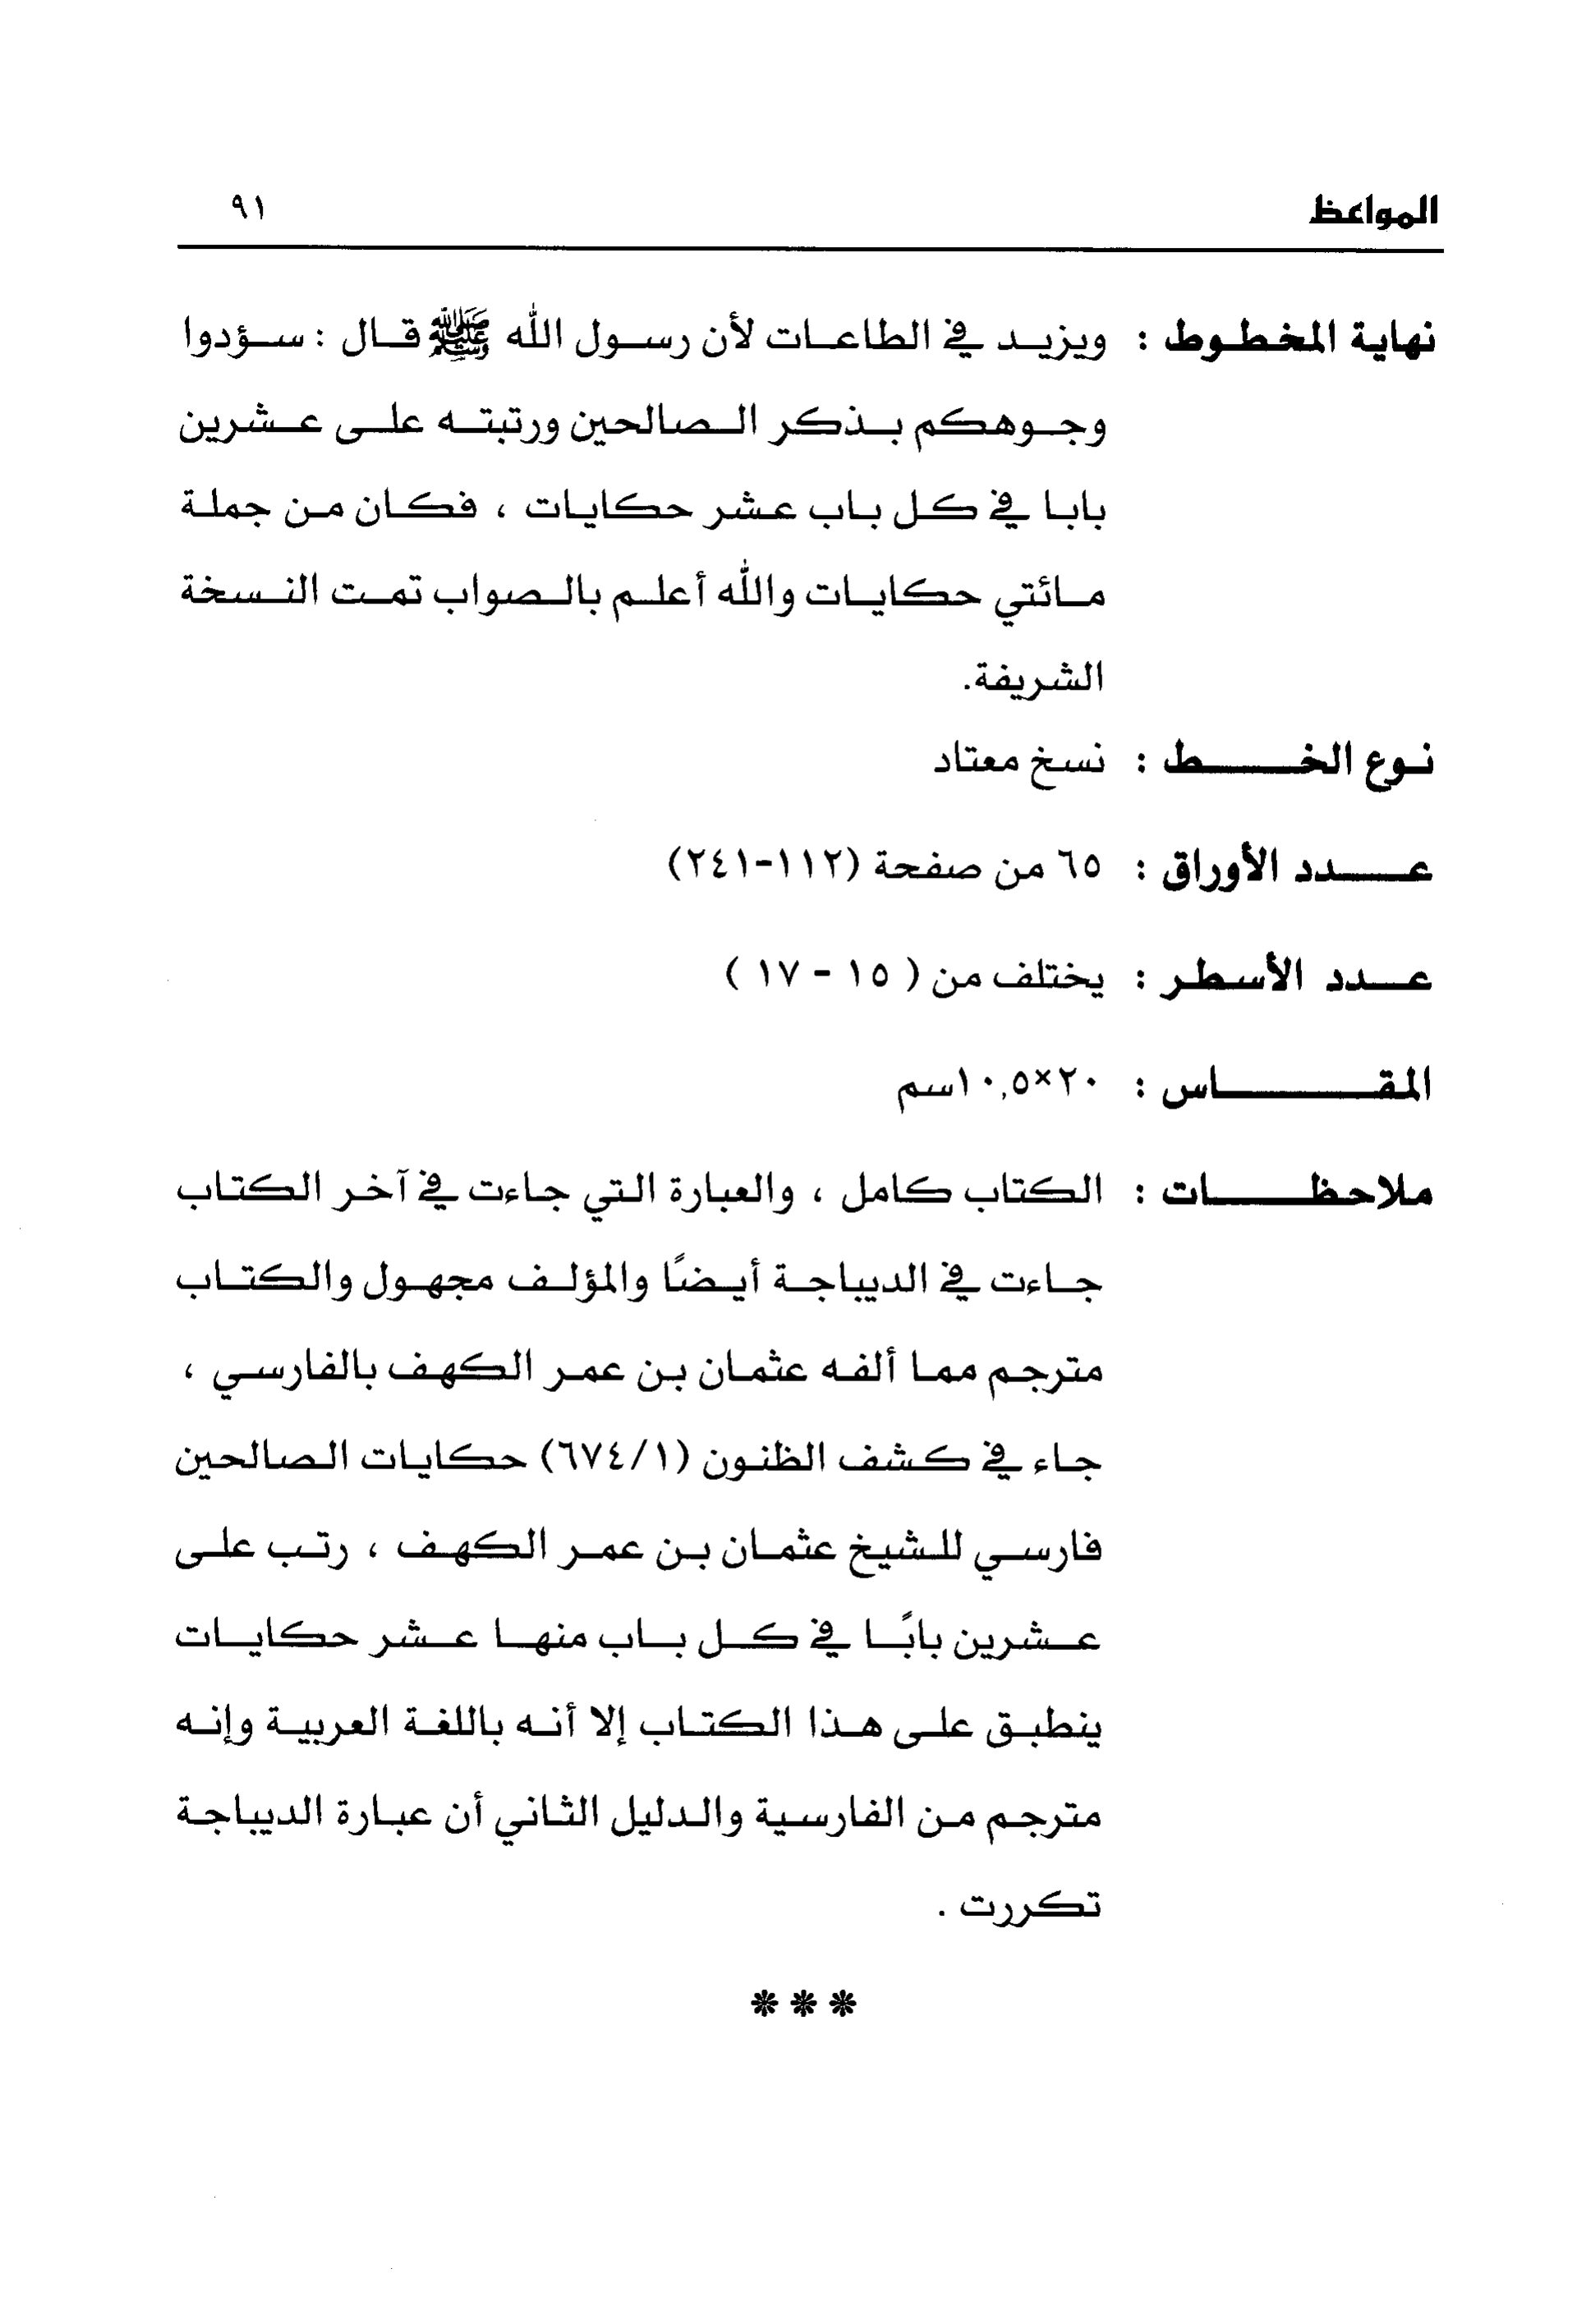 المواعظ ٩١
نهاية المخطوط : ويزيد في الطاعات لأن رسول الله ﷺ قال : سؤدوا
وجوهكم بذكر الصالحين ورتبته على عشرين
بابا في كل باب عشر حكايات ، فكان من جملة
مائتي حكايات والله أعلم بالصواب تمت النسخة
الشريفة.
نوع الخط : نسخ معتاد
عدد الأوراق : ٦٥ من صفحة (١١٢-٢٤١)
عدد الأسطر : يختلف من ( ١٥ - ١٧ )
المقاس : ٢٠×١٠,٥سم
ملاحظات : الكتاب كامل ، والعبارة التي جاءت في آخر الكتاب
جاءت في الديباجة أيضًا والمؤلف مجهول والكتاب
مترجم مما ألفه عثمان بن عمر الكهف بالفارسي ،
جاء في كشف الظنون (٦٧٤/١) حكايات الصالحين
فارسي للشيخ عثمان بن عمر الكهف ، رتب على
عشرين بابًا في كل باب منها عشر حكايات
ينطبق على هذا الكتاب إلا أنه باللغة العربية وإنه
مترجم من الفارسية والدليل الثاني أن عبارة الديباجة
تكررت .
***